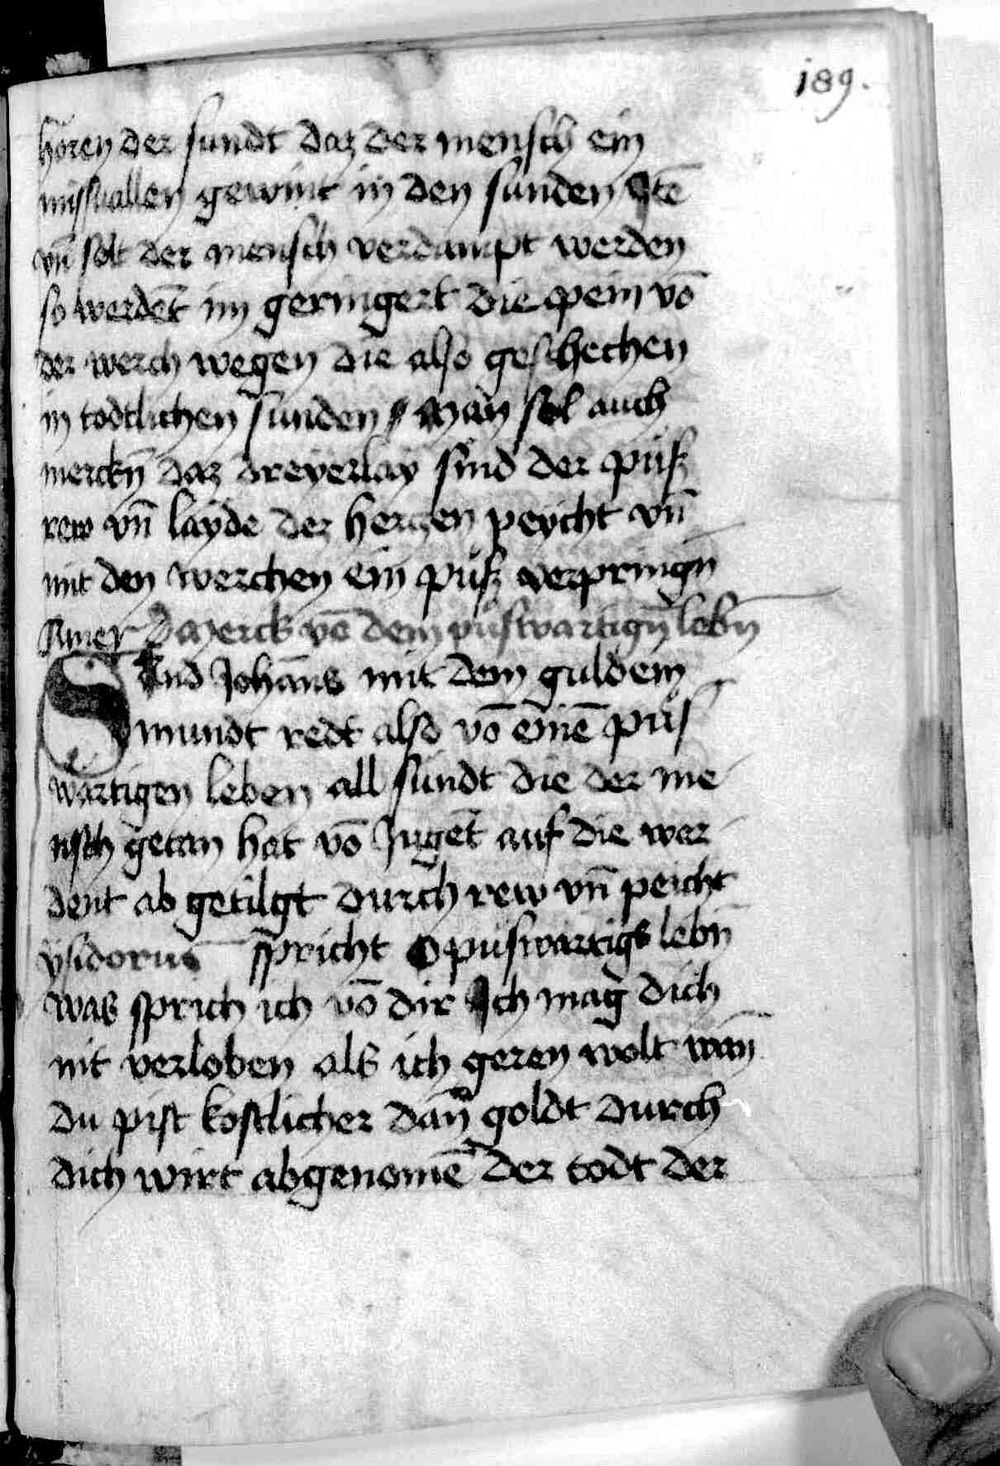 189.
hören der sundt daz der mensch ein
missuallen gewint in den sunden Itē
vn̄ solt der mensch verdampt werden
so werdēt im geringert die pein vō
der werch wegen die also geschechen
in todtlichen sunden Man sol auch
merckn̄ daz dreyerlay sind der puͤsz
rew vn̄ layde dez herczen peycht vn̄
mit den werchen ein puͤsz verpringn̄
Amer Merck vō dem puͤswartign̄ lebn̄
Sand Johān̄s mit dem guldem
mundt redt also vō einē puͤs
wartigen leben all sundt die der me
nsch getan hat vō Jugēt auf die wer
dent ab getilgt durch rew vn̄ peicht
ysidorus spricht O puͤswartigs lebn̄
was sprich ich vō dir Ich mag dich
nit verloben als ich geren wolt wan̄
du pist kostlicher dan̄ goldt durch
dich wirt abgenomē der todt der